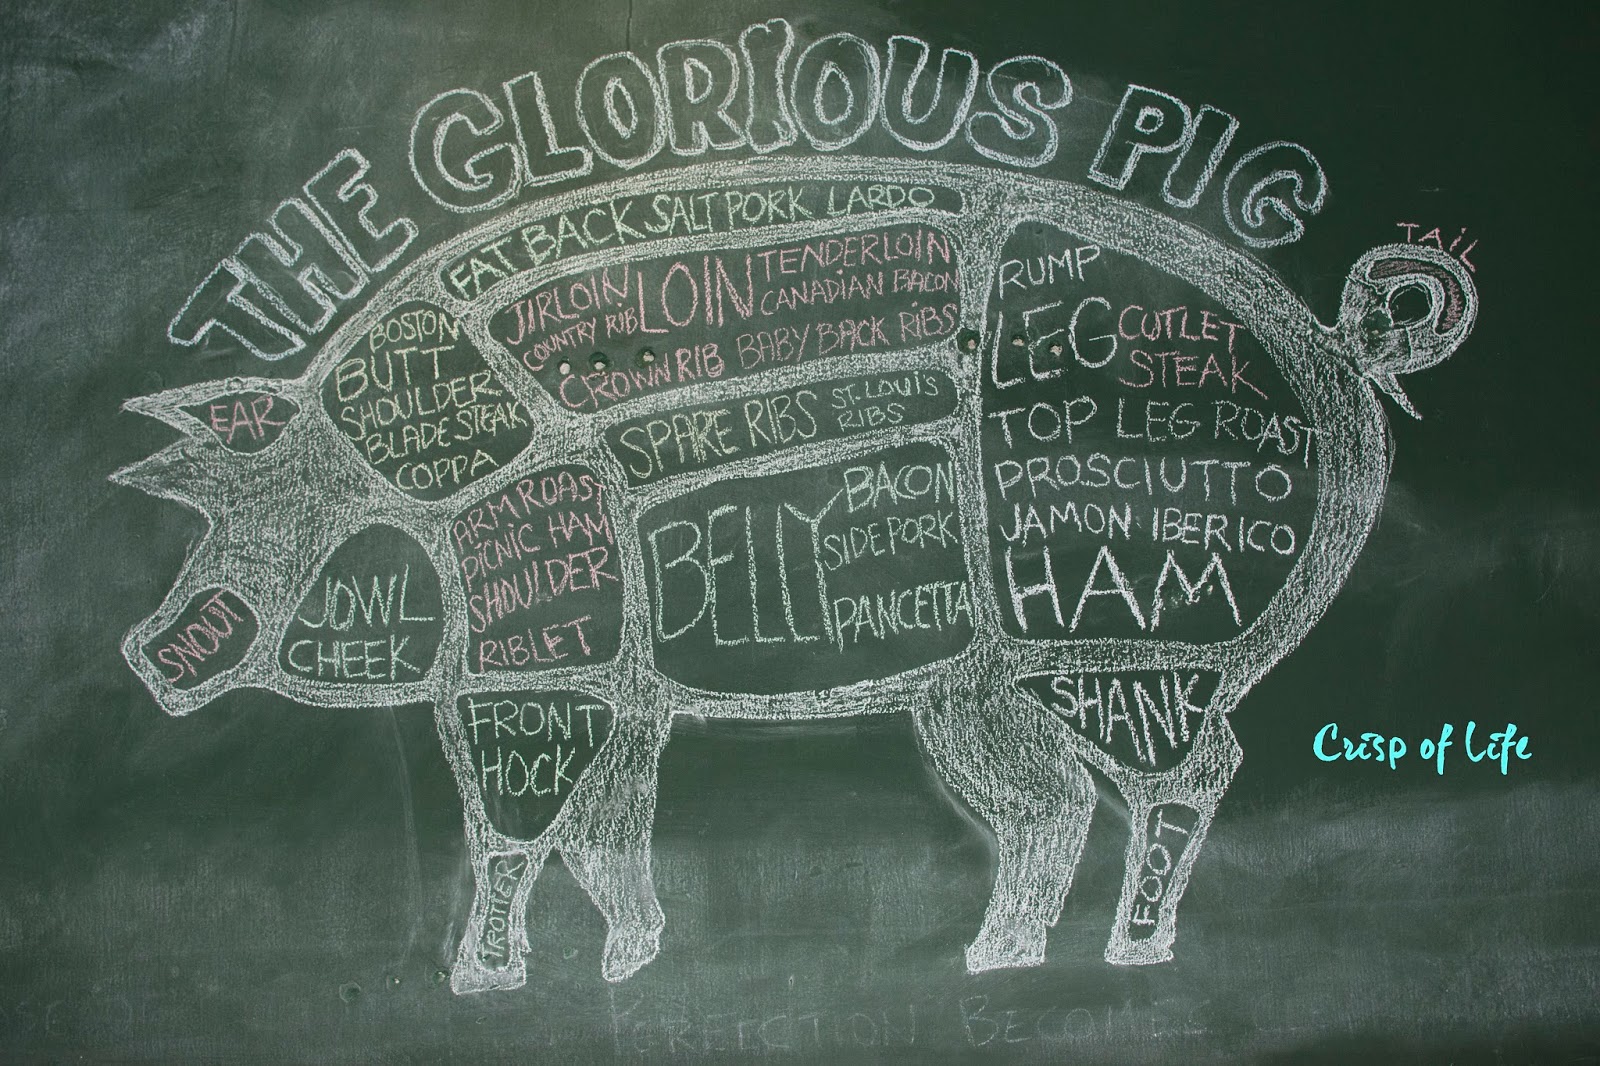 THE GLORIOUS PIG
TAIL
FAT BACK SALT PORK LARDO
JIRLOIN
COUNTRY RIB
LOIN
TENDERLOIN
CANADIAN BACON
CROWN RIB
BABY BACK RIBS
RUMP
LEG
CUTLET
STEAK
TOP LEG ROAST
PROSCIUTTO
JAMON IBERICO
HAM
BOSTON
BUTT
SHOULDER
BLADE STEAK
COPPA
EAR
SPARE RIBS
ST. LOUIS
RIBS
ARM ROAST
PICNIC HAM
SHOULDER
RIBLET
BELLY
BACON
SIDE PORK
PANCETTA
JOWL
CHEEK
SNOUT
FRONT
HOCK
SHANK
TROTTER
FOOT
Crisp of Life
PERFECTION